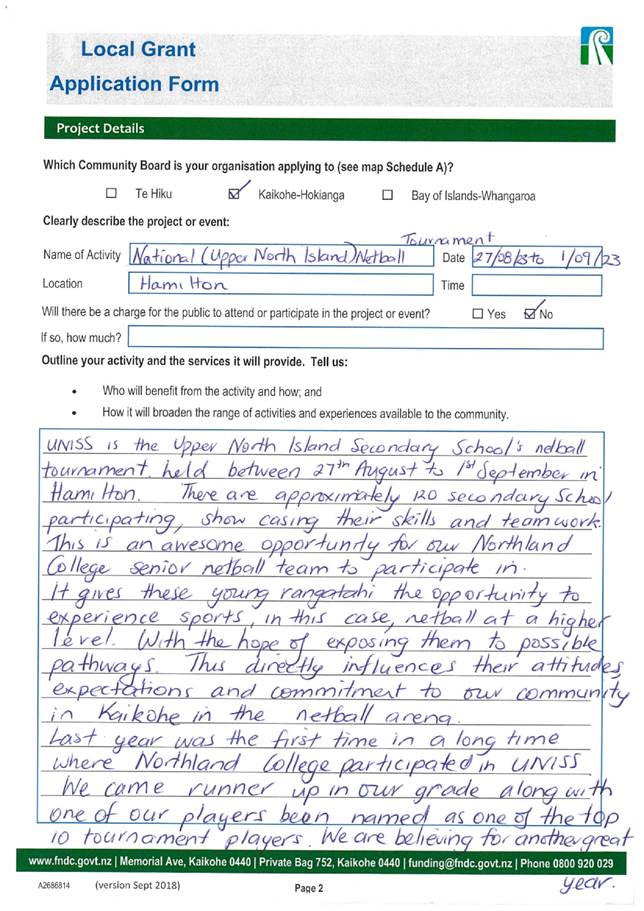 Local Grant
Application Form
Project Details
Which Community Board is your organisation applying to (see map Schedule A)?
Te Hiku
Kaikohe-Hokianga
Bay of Islands-Whangaroa
Clearly describe the project or event:
Tournament
Name of Activity National (Upper North Island) Netball Date 27/08/23 to 1/09/23
Location Hamilton Time
Will there be a charge for the public to attend or participate in the project or event? Yes No
If so, how much?
Outline your activity and the services it will provide. Tell us:
• Who will benefit from the activity and how; and
• How it will broaden the range of activities and experiences available to the community.
UNISS is the Upper North Island Secondary School's netball
tournament held between 27th August to 1st September in
Hamilton. There are approximately 120 secondary School
participating, show casing their skills and team work.
This is an awesome opportunity for our Northland
College senior netball team to participate in.
It gives these young rangatahi the opportunity to
experience sports, in this case, netball at a higher
level. With the hope of exposing them to possible
pathways. This directly influences their attitudes
expectations and commitment to our community
in Kaikohe in the netball arena.
Last year was the first time in a long time
where Northland College participated in UNISS.
We came runner up in our grade along with
one of our players been named as one of the top
10 tournament players. We are believing for another great
year.
www.fndc.govt.nz | Memorial Ave, Kaikohe 0440 | Private Bag 752, Kaikohe 0440 | funding@fndc.govt.nz | Phone 0800 920 029
A2686814 (version Sept 2018) Page 2